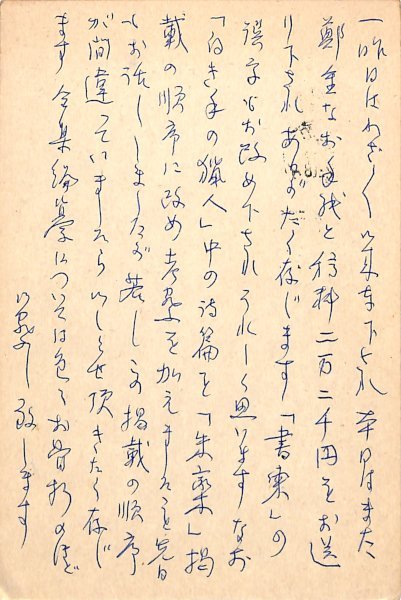 一昨日はわざ〱御来車下され本日はまた
鄭重なお手紙と稿料二万二千円をお送
り下されありがたく存じます「書柬」の
誤字もお改め下されうれしく思ひますなお
「白き手の猟人」中の詩篇を「朱欒」掲
載の順序に改め考察を加えましたことを先日
もお話ししましたが若しその掲載の順序
が間違っていましたらしらせ頂きたく存じ
ます全集編纂については色々お骨折のほど
お察し致します